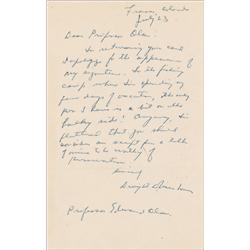 Fraser, Colorado
July 23
Dear Professor Olson:
In returning your card
I apologize for the appearance of
my signature. In the fishing
camp where I'm spending a
few days of vacation, the only
pen I have is a bit on the
balky side! Anyway, I'm
flattered that you should
consider an except from a talk
of mine to be worthy of
Sincerely
Dwight Eisenhower
Professor Edward Olson